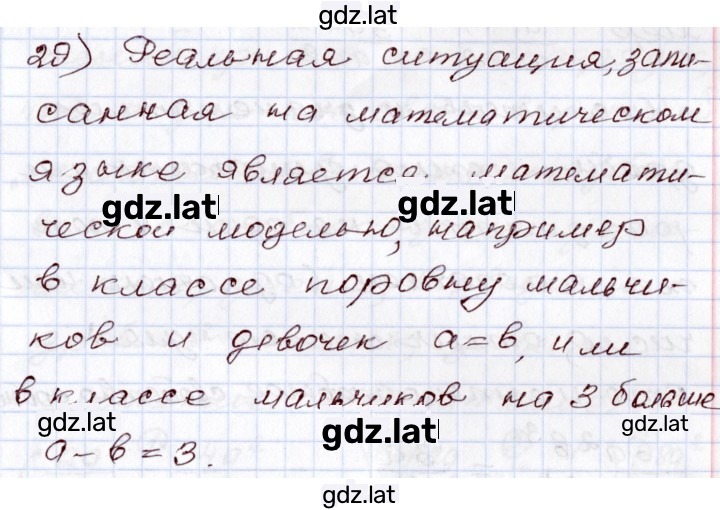 gdz.lat
2д) Реальная ситуация, запи-
санная на математическом
языке является математи-
gdz.lat gdz.lat
ческой моделью, например
в классе поровну мальчи-
ков и девочек а = в, или
в классе мальчиков на 3 больше
gdz.lat gdz.lat
а - в = 3.
gdz.lat